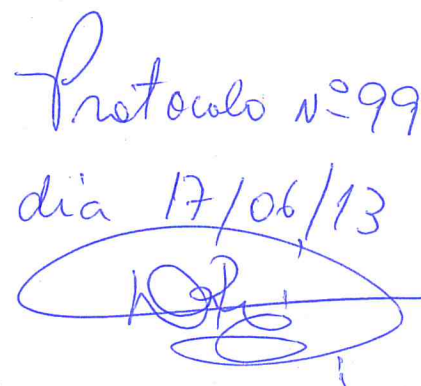 Protocolo Nº 99
dia 17/06/13